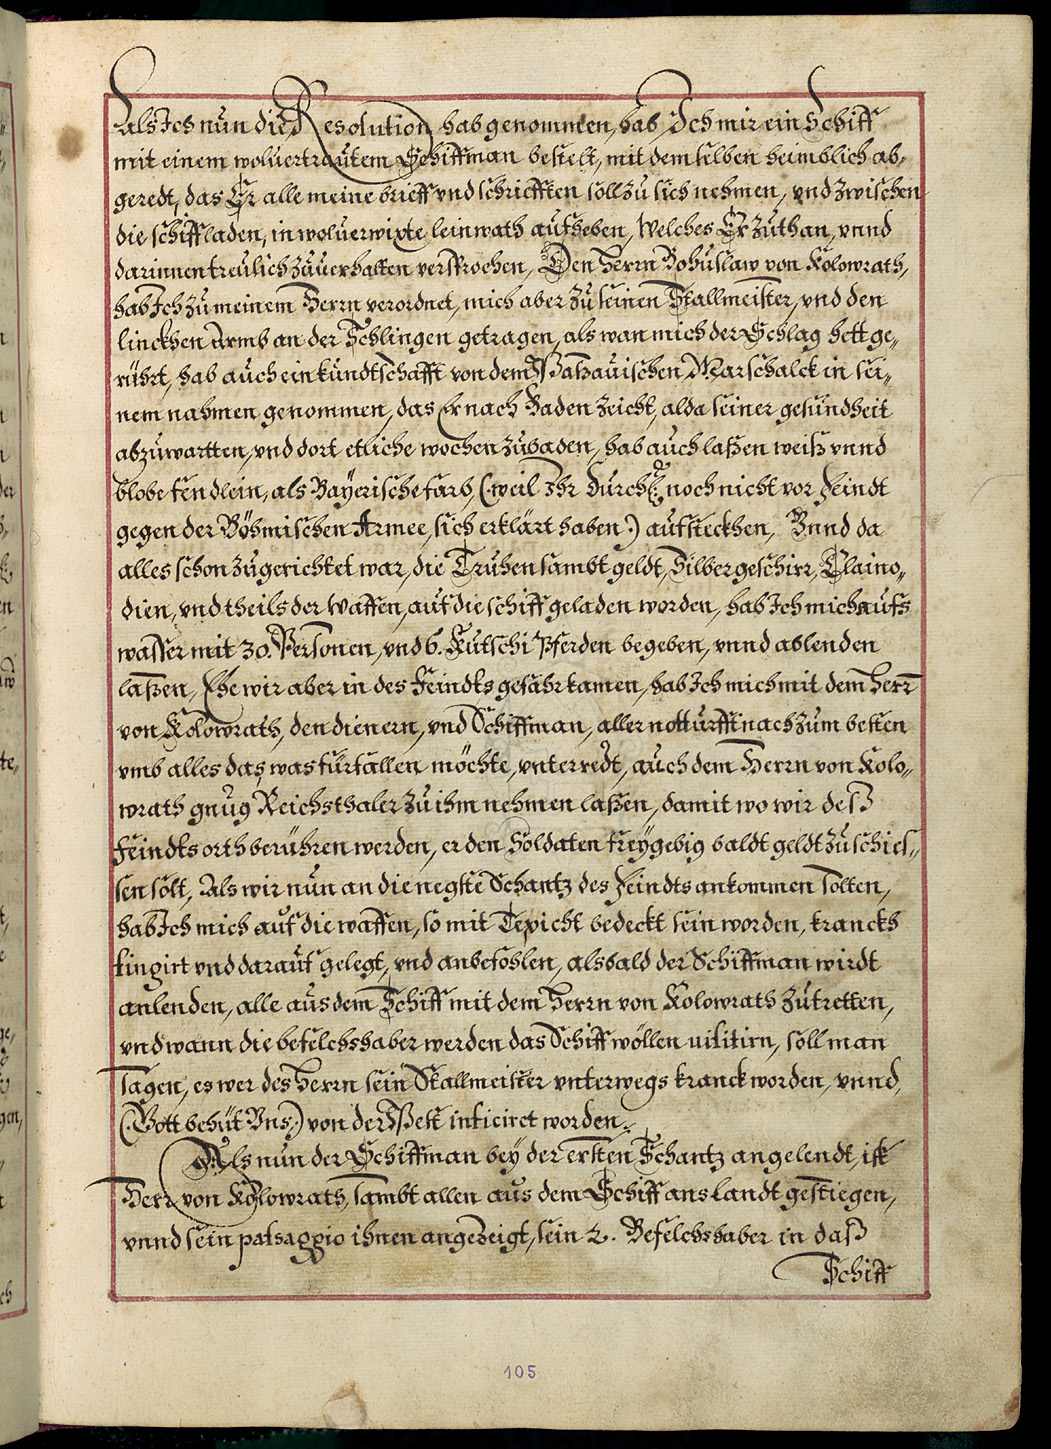 Als Ich nun die Resolution hab genommen, hab Ich mir ein Schiff
mit einem woluertrautem Schiffman bestelt, mit demselben heimblich ab,
geredt, das Er alle meine brieff vnd schrifften soll zu sich nehmen, vnd zwischen
die schiffladen, in woluerwixte leinwath aufheben, Welches Er zuthan, vnnd
darinnen treulich zuuerhalten versprochen, Den Herrn Bohuslaw von Kolowrath,
hab Ich zu meinem Herrn verordnet, mich aber zu seinen Stallmeister, vnd den
linckhen Armb an der Schlingen getragen, als wan mich der Schlag hett ge,,
rührt, hab auch ein kundtschafft von dem Paßauischen Marschalck in sei,,
nem nahmen genommen, das Er nach Baden zeicht, alda seiner gesundheit
abzuwartten, vnd dort etliche wochen zubaden, hab auch laßen weiß vnnd
blobe fendlein, als Bayerische farb, (: weil Ihr Durchl: noch nicht vor Feindt
gegen der Böhmischen Armee, sich erklärt haben :) aufsteckhen, Vnnd da
alles schon zugerichtet war, die Truhen sambt geldt, Silbergeschirr, Claino,,
dien, vnd theils der Waffen, auf die schiff geladen worden, hab Ich mich aufs
wasser mit 30. Personen, vnd 6. Kutschi Pferden begeben, vnnd ablenden
laßen, Ehe wir aber in des Feindts gefahr kamen, hab Ich mich mit dem Herrn
von Kolowrath, den dienern, vnd Schiffman, aller notturfft nach zum besten
vmb alles das, was fürfallen möchte, vnterredt, auch dem Herrn von Kolo,,
wrath gnug Reichsthaler zu ihm nehmen laßen, damit wo wir deß
Feindts orth berühren werden, er den Soldaten freygebig baldt geldt zuschies,,
sen solt, Als wir nun an die negste Schantz des Feindts ankommen solten,
hab Ich mich auf die waffen, so mit Tepicht bedeckt sein worden, kranckh
fingirt vnd darauf gelegt, vnd anbefohlen, alsbald der Schiffman wirdt
anlenden, alle aus dem Schiff mit dem Herrn von Kolowrath zutretten,
vnd wann die befelchshaber werden das Schiff wöllen uisitirn, soll man
sagen, es wer des Herrn sein Stallmeister vnterwegs kranck worden, vnnd,
(: Gott behüt Vns :) von der Pest inficiret worden.
Als nun der Schiffman bey der ersten Schantz angelendt, ist
Herr von Kolowrath, sambt allen aus dem Schiff ans landt gestiegen,
vnnd sein passaggio ihnen angezeigt, sein 2. Befelchshaber in daß
Schiff
105